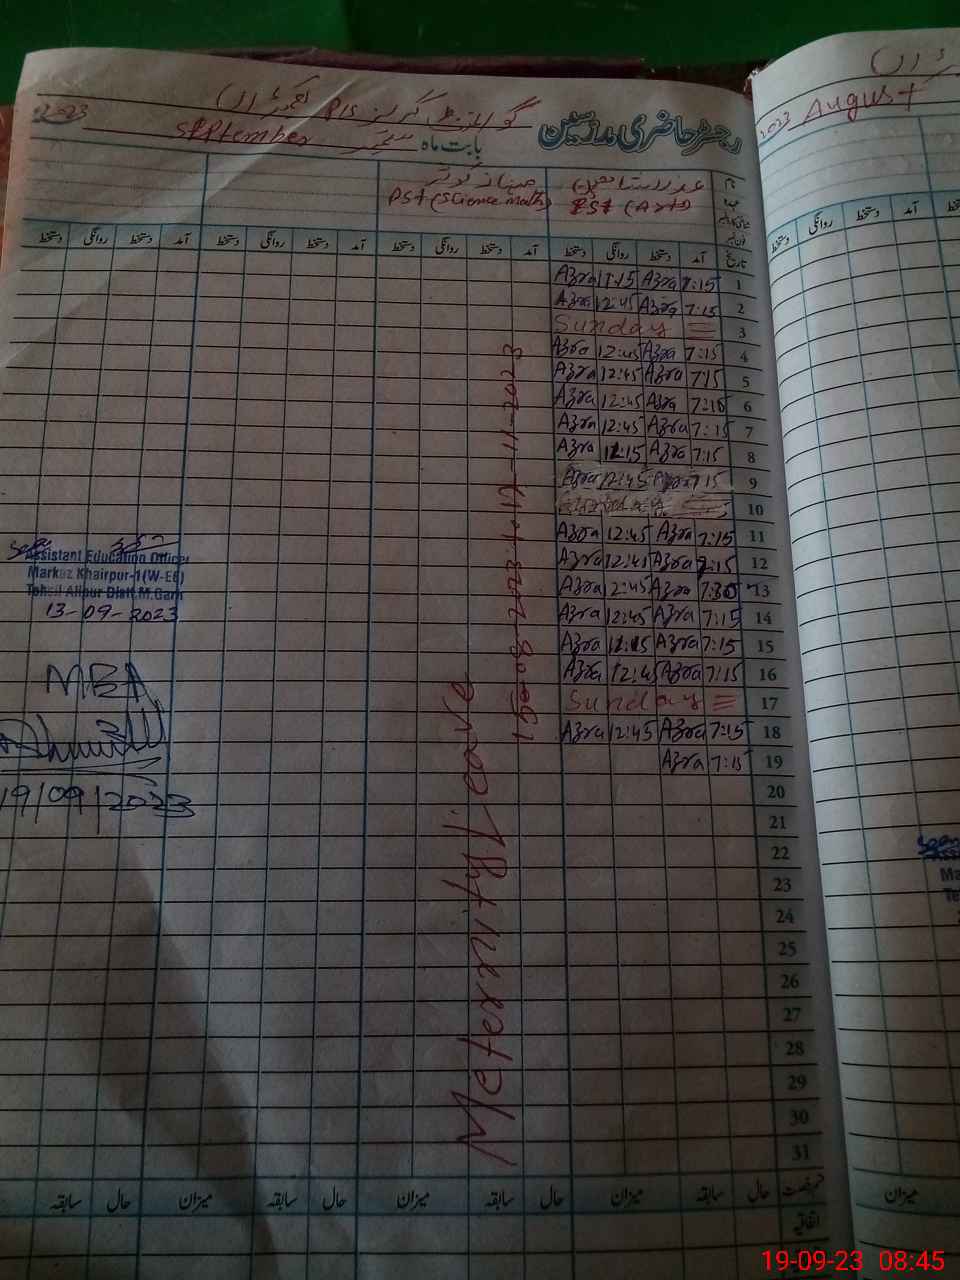 رجسٹر حاضری مدرسین
گورنمنٹ گرلز P/S
بابت ماہ ستمبر September 2023
2023 August
نام
PST (Science Math) PST (Arts)
تاریخ آمد دستخط روانگی دستخط آمد دستخط روانگی دستخط آمد دستخط روانگی دستخط آمد دستخط روانگی دستخط
1 7:15 Azra 11:15 Azra
2 7:15 Azra 12:45 Azra
3 Sunday
4 7:15 Azra 12:45 Azra
5 7:15 Azra 12:45 Azra
6 7:15 Azra 12:45 Azra
7 7:15 Azra 12:45 Azra
8 7:15 Azra 11:15 Azra
9 7:15 Azra 12:45 Azra
10 Sunday
11 7:15 Azra 12:45 Azra
12 7:15 Azra 12:45 Azra
13 7:30 Azra 12:45 Azra
14 7:15 Azra 12:45 Azra
15 7:15 Azra 11:15 Azra
16 7:15 Azra 12:45 Azra
17 Sunday
18 7:15 Azra 12:45 Azra
19 7:15 Azra
20
21
22
23
24
25
26
27
28
29
30
31
Meternity Leave
15-08-2023 t 12-11-2023
Assistant Education Officer
Markaz Khairpur-1(W-EE)
Tehsil Alipur Distt.M.Garh
13-09-2023
MEA
19/09/2023
قسم رخصت حال سابقہ میزان حال سابقہ میزان حال سابقہ میزان حال سابقہ
اتفاقیہ
میزان
19-09-23 08:45